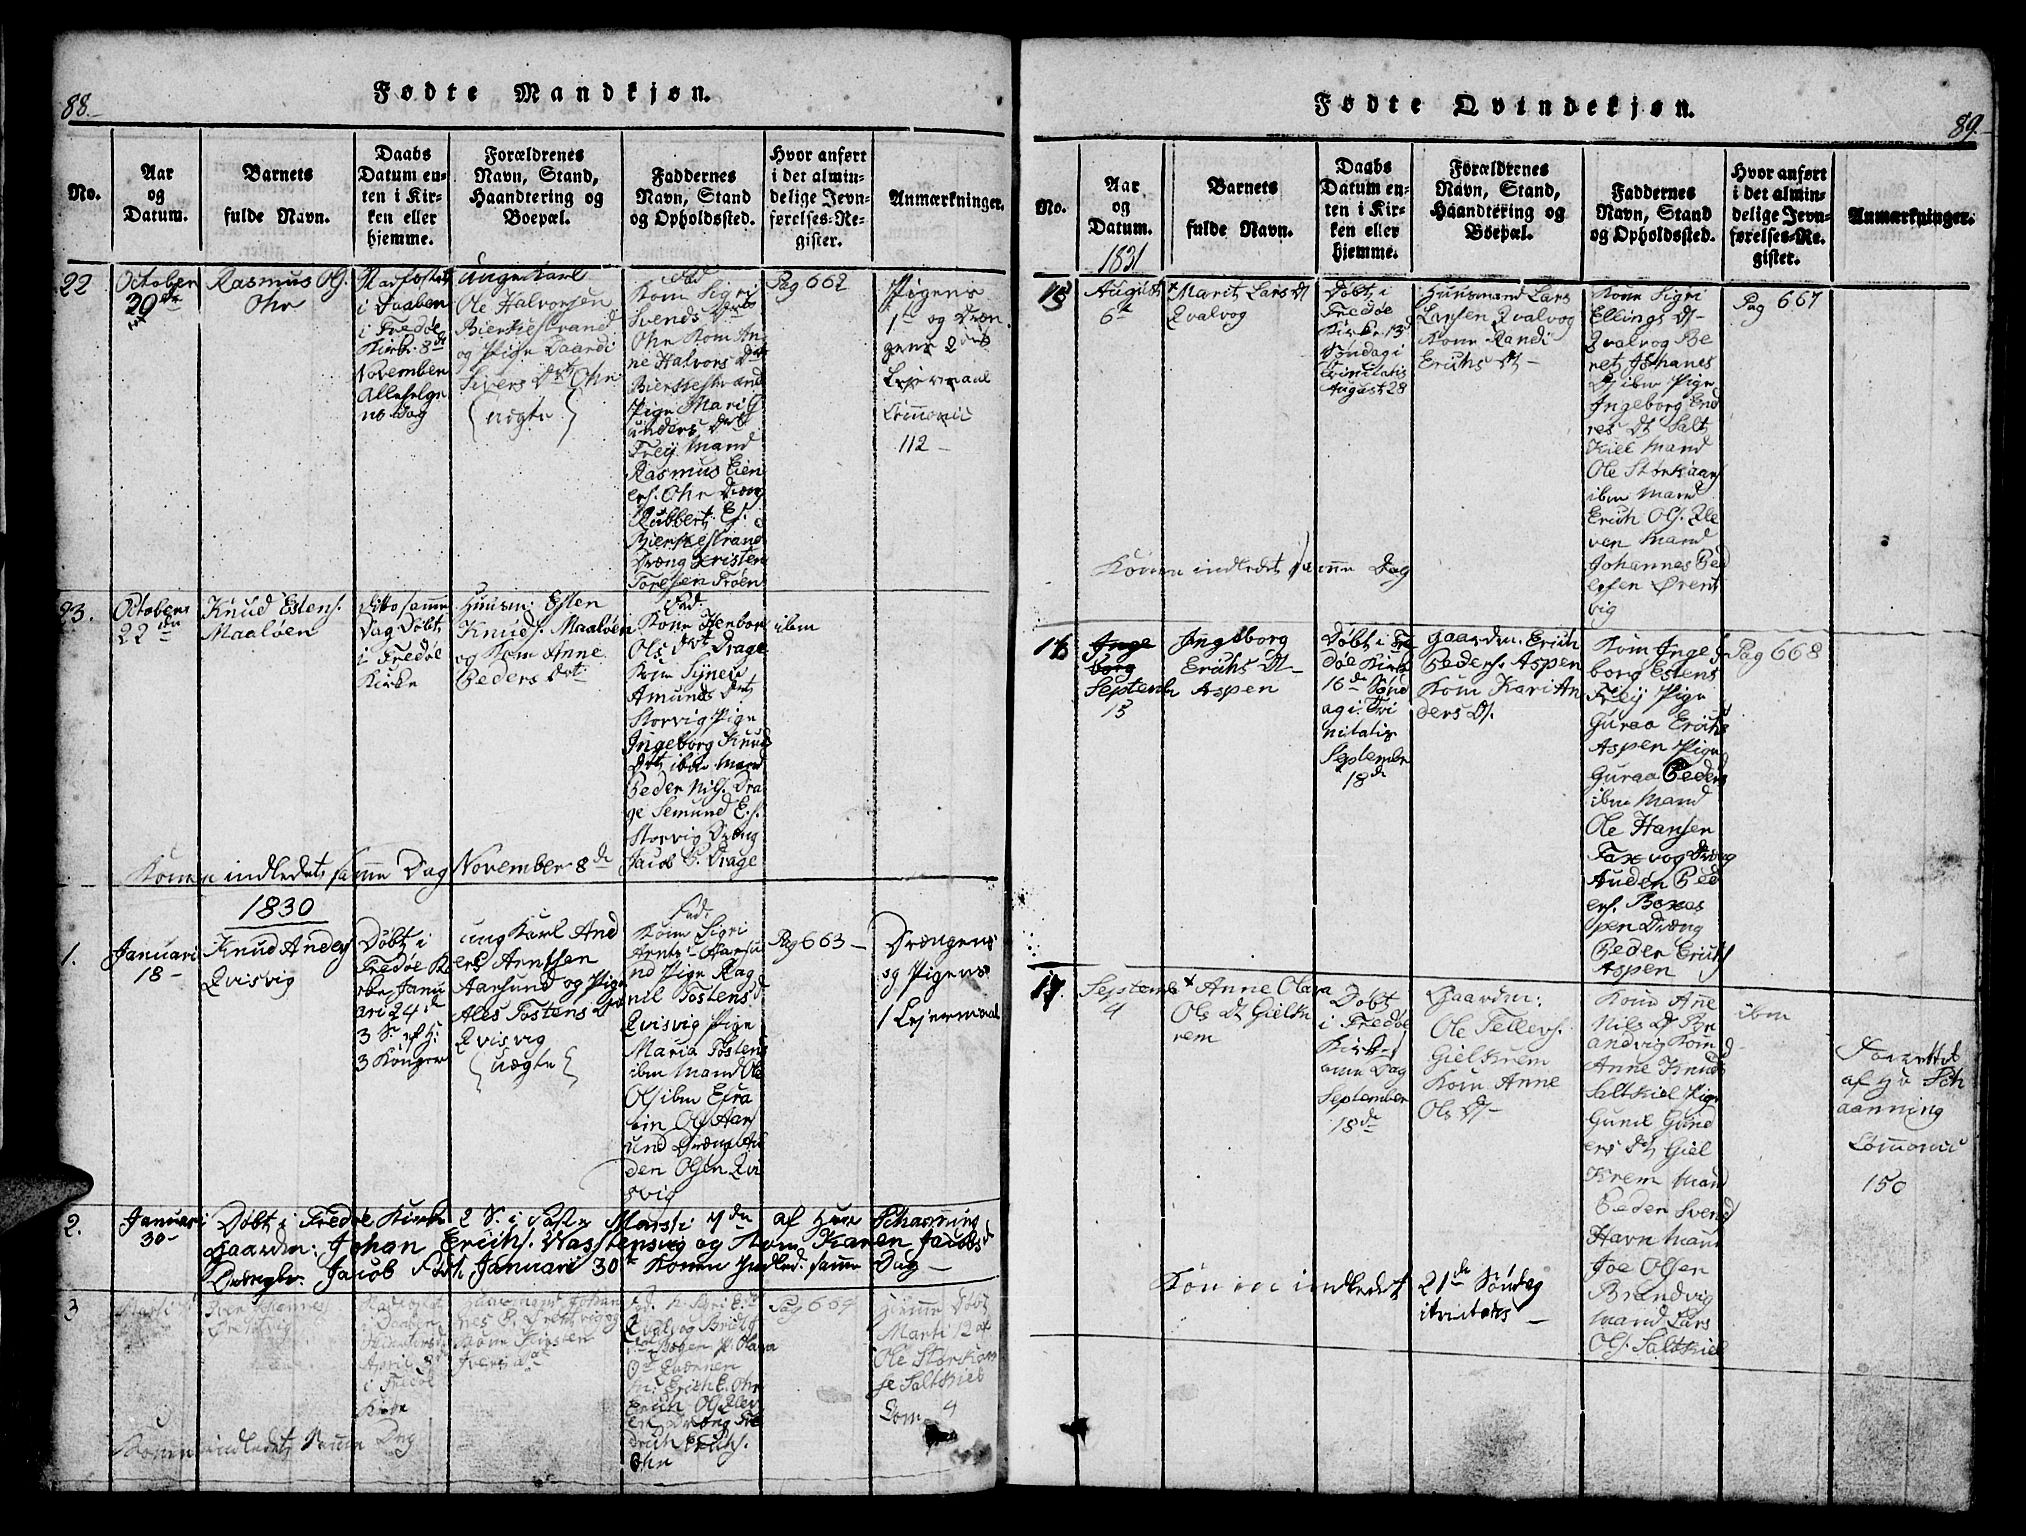 88.
Fødte Mandkjøn.
No.
Aar
og
Datum.
Barnets
fulde Navn.
Daabs
Datum en-
ten i Kir-
ken eller
hjemme.
Forældrenes
Navn, Stand,
Haandtering og
Boepæl.
Faddernes
Navn, Stand
og Opholdssted.
Hvor anført
i det almin-
delige Jevn-
førelses-Re-
gister.
Anmærkninger.
22
October
29de
Rasmus Ols.
Ohr
i Daaben
i Fredøe
Kirke 8de
November
Allehelge
ns Dag
unge Karl
Ole Halvorsen
Bierkestrand
og Pige
Sivers Dtr Ohr
(uægte)
Fad
Kone Sigri
Svends Dtr
Ohr Kone An
ne Halvors Dtr
Bierkestrand
Pige Mari G
unders Dtr
Freij Mand
Rasmus Eien
ers. Ohr Dreng
Rubbert E.
Bierkestrand
Dræng Kristen
Toresen Frøen
Pag 662
Pigens
1te og Dræn
gens 2det
Leiermaal
112
23.
October
22de
Knud Estens.
Maaløen
Ditto samme
Dag Døbt
i Fredøe
Kirke
Huusm: Esten
Knuds. Maaløen
og Kone Anne
Peders Dtr
Fad.
Kone
Ols Dtr Drage
Kone
Amunds Dtr
Storvig Pige
Ingeborg Knuds
Dtr ibm Mand
Peder Nils. Dra
ge Semund E.s.
Storvig Dreng
Jacob P. Drage
ibm
Konen indledet samme Dag November 8de
1830
1.
Januari
18
Knud Anders
Qvisvig
Døbt i
Fredøe K
rke Janu
ari 24de
3 S. ef H:
3 Konger
ung Karl And
ers Arntsen
Aarsund og Pige
Ales Tostens Dtr
Qvisvig
(uægte)
Fad.
Kone Sigri
Arnts Aarsu
nd Pige Rag
nil Tostens d
Qvisvig Pige
Maria Tostens
ibm Mand Ole
Ols ibm
Ols Aar
und Dræng Au
den Olsen Qvi
svig
Pag 663
Drængens
og Pigens
1 Lejermaal
2.
Januari
30
Døbt i Fredøe Kirke 2 S. i Faste Martii 7de af Herr Schanning
Gaardm: Johan Erichs. og Kone Karen Jacobs d
Drængebr. Jacob Født Januari 30te Konen Indled. samme Dag
3
Marti
Iver Johannes
i Daaben
April
i Fredøe
Kirke
Huusmand Johan
nes
Kirsten
Ivers Dtr
Qvalvog
Bøgen P. Olava
M: Erich E. Ohr
Erich Ols
Dreng Fre
drich Erichs.
Ohr
Pag 664
Hjemme Døbt
Marti 12 af
Ole Storkaar
se Saltkiel
Com. 4
Konen indledet samme Dag
89.
Fødte Qvindekjøn.
No.
Aar
og
Datum.
1831
Barnets
fulde Navn.
Daabs
Datum en-
ten i Kir-
ken eller
hjemme.
Forældrenes
Navn, Stand,
Haandtering og
Boepæl.
Faddernes
Navn, Stand
og Opholdssted.
Hvor anført
i det almin-
delige Jevn-
førelses-Re-
gister.
Anmærkninger.
15
August
6te
Marit Lars Dt
Qvalvog
Døbt i
Fredøe
Kirke 13d
Søndag i
Trinitatis
August 28
Huusmand Lars
Larsen Qvalvog
Kone Randi
Erichs Dt
Kone Sigri
Ellings Dt
Qvalvog Be
ret Johanes
Dt ibm Pige
Ingeborg End
res Dt Salt
Kiel Mand
Ole Storkaars
ibm Mand
Erich Ols. Qle
ven Mand
Johannes Ped
ersen Ørent
vig
Pag 667
Konen indledet samme Dag
16
Inge
borg
Septemb
13
Ingeborg
Erichs Dt
Aspen
Døbt i Fre
døe Kirke
16de Sønd
ag i Tri
nitatis
September
18de
Gaardm. Erich
Peders. Aspen
Kone Kari An
ders Dt.
Kone Inge
borg Estens
Freij Pige
Guraa Erichs
Aspen Pige
Guraa Peders
ibm Mand
Ole Hansen
Faxvog Dreng
Auden Ped
ers. Boxas
pen Dræng
Peder Erichs
Aspen
Pag 668
17
Septemb
4
Anne Olava
Ols Dt Gielk
rem
Døbt
i Fredøe
Kirke
amme Dag
September
18de
Gaardm:
Ole Tellefs.
Gielkrem
Kone Anne
Ols Dt
Kone Ane
Nils Dt Br
andvig Kone
Anne Knuds
Saltkiel Pige
Gunil Gund
ers Dt Giel
Krem Mand
Peder Svend
Havn Mand
Joe Olsen
Brandvig
Mand Lars
Ols. Saltkiel
ibm
Forrettet
af Hr Sch
anning
150
Konen indledet 21de Søndag